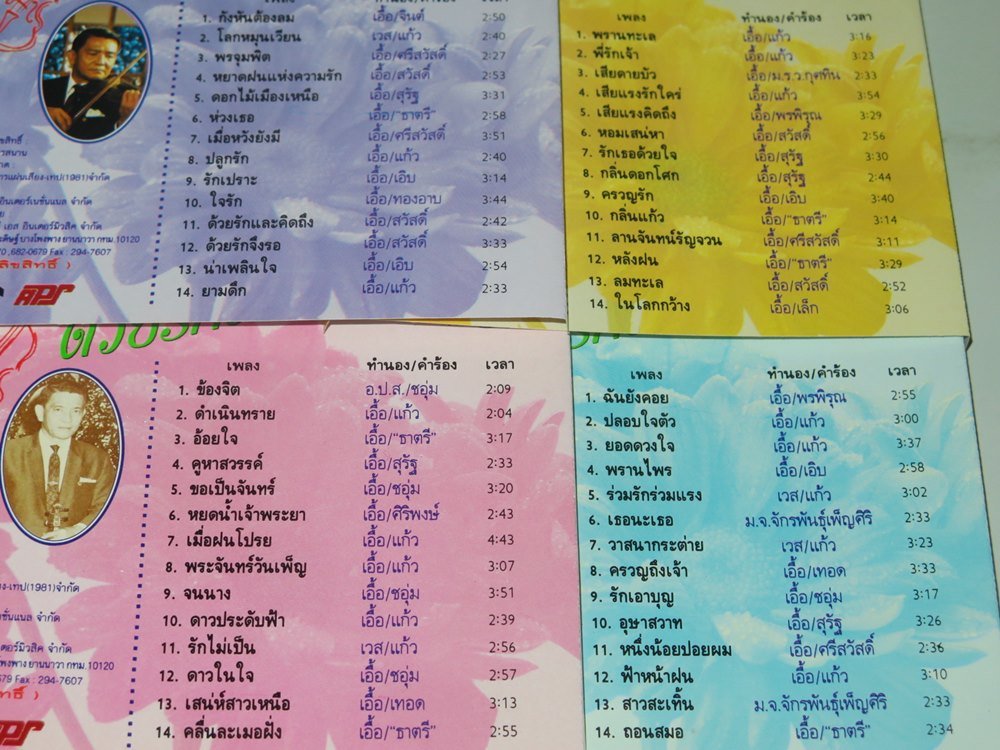 เพลง ทำนอง/คำร้อง เวลา
1. กังหันต้องลม เอื้อ/จินต์ 2:50
2. โลกหมุนเวียน เวส/แก้ว 2:40
3. พรจุมพิต เอื้อ/ศรีสวัสดิ์ 2:27
4. หยาดฝนแห่งความรัก เอื้อ/สวัสดิ์ 2:53
5. ดอกไม้เมืองเหนือ เอื้อ/สุรัฐ 3:31
6. ห่วงเธอ เอื้อ/"ธาตรี" 2:58
7. เมื่อหวังยังมี เอื้อ/ศรีสวัสดิ์ 3:51
8. ปลูกรัก เอื้อ/แก้ว 2:40
9. รักเปราะ เอื้อ/เอิบ 3:14
10. ใจรัก เอื้อ/ทองอาบ 3:44
11. ด้วยรักและคิดถึง เอื้อ/สวัสดิ์ 2:42
12. ด้วยรักจึงรอ เอื้อ/สวัสดิ์ 3:33
13. น่าเพลินใจ เอื้อ/เอิบ 2:54
14. ยามดึก เอื้อ/แก้ว 2:33
การแผ่นเสียง-เทป(1981)จำกัด
อินเตอร์เนชั่นแนล จำกัด
เอส อินเตอร์มิวสิค จำกัด
บางโพงพาง ยานนาวา กทม.10120
,682-0679 Fax : 294-7607
ลิขสิทธิ์ )
APS
เพลง ทำนอง/คำร้อง เวลา
1. พรานทะเล เอื้อ/แก้ว 3:16
2. พี่รักเจ้า เอื้อ/แก้ว 3:23
3. เสียดายบัว เอื้อ/ม.ร.ว.กุศทิน 2:33
4. เสียแรงรักใคร่ เอื้อ/แก้ว 3:54
5. เสียแรงคิดถึง เอื้อ/พรพิรุณ 3:29
6. หอมเสน่หา เอื้อ/สวัสดิ์ 2:56
7. รักเธอด้วยใจ เอื้อ/สุรัฐ 3:30
8. กลิ่นดอกโศก เอื้อ/สุรัฐ 2:44
9. ครวญรัก เอื้อ/เอิบ 3:40
10. กลิ่นแก้ว เอื้อ/"ธาตรี" 3:14
11. ลานจันทน์รัญจวน เอื้อ/ศรีสวัสดิ์ 3:11
12. หลังฝน เอื้อ/"ธาตรี" 3:29
13. ลมทะเล เอื้อ/สวัสดิ์ 2:52
14. ในโลกกว้าง เอื้อ/เล็ก 3:06
เพลง ทำนอง/คำร้อง เวลา
1. ข้องจิต อ.ป.ส./ชอุ่ม 2:09
2. ดำเนินทราย เอื้อ/แก้ว 2:04
3. อ้อยใจ เอื้อ/"ธาตรี" 3:17
4. คูหาสวรรค์ เอื้อ/สุรัฐ 2:33
5. ขอเป็นจันทร์ เอื้อ/ชอุ่ม 3:20
6. หยดน้ำเจ้าพระยา เอื้อ/ศิริพงษ์ 2:43
7. เมื่อฝนโปรย เอื้อ/แก้ว 4:43
8. พระจันทร์วันเพ็ญ เอื้อ/แก้ว 3:07
9. จนนาง เอื้อ/ชอุ่ม 3:51
10. ดาวประดับฟ้า เอื้อ/แก้ว 2:39
11. รักไม่เป็น เวส/แก้ว 2:56
12. ดาวในใจ เอื้อ/ชอุ่ม 2:57
13. เสน่ห์สาวเหนือ เอื้อ/เทอด 3:13
14. คลื่นละเมอฝั่ง เอื้อ/"ธาตรี" 2:55
-เทป(1981)จำกัด
จำกัด
จำกัด
ยานนาวา กทม.10120
Fax : 294-7607
เพลง ทำนอง/คำร้อง เวลา
1. ฉันยังคอย เอื้อ/พรพิรุณ 2:55
2. ปลอบใจตัว เอื้อ/แก้ว 3:00
3. ยอดดวงใจ เอื้อ/แก้ว 3:37
4. พรานไพร เอื้อ/เอิบ 2:58
5. ร่วมรักร่วมแรง เวส/แก้ว 3:02
6. เธอนะเธอ ม.จ.จักรพันธุ์เพ็ญศิริ 2:33
7. วาสนากระต่าย เวส/แก้ว 3:23
8. ครวญถึงเจ้า เอื้อ/เทอด 3:33
9. รักเอาบุญ เอื้อ/ชอุ่ม 3:17
10. อุษาสวาท เอื้อ/สุรัฐ 3:26
11. หนึ่งน้อยปอยผม เอื้อ/ศรีสวัสดิ์ 2:36
12. ฟ้าหน้าฝน เอื้อ/แก้ว 3:10
13. สาวสะเทิ้น ม.จ.จักรพันธุ์เพ็ญศิริ 2:33
14. ถอนสมอ เอื้อ/"ธาตรี" 2:34